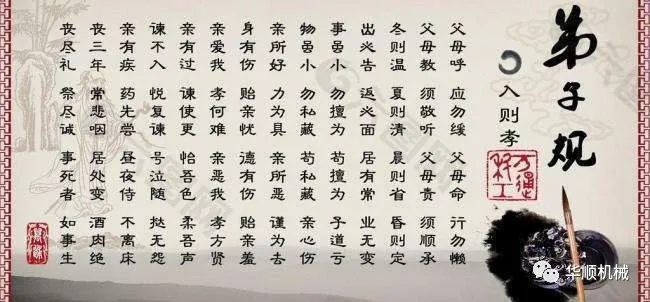 弟子规
入则孝
父母呼 应勿缓 父母命 行勿懒
父母教 须敬听 父母责 须顺承
冬则温 夏则清 晨则省 昏则定
出必告 返必面 居有常 业无变
事虽小 勿擅为 苟擅为 子道亏
物虽小 勿私藏 苟私藏 亲心伤
亲所好 力为具 亲所恶 谨为去
身有伤 贻亲忧 德有伤 贻亲羞
亲爱我 孝何难 亲恶我 孝方贤
亲有过 谏使更 怡吾色 柔吾声
谏不入 悦复谏 号泣随 挞无怨
亲有疾 药先尝 昼夜侍 不离床
丧三年 常悲咽 居处变 酒肉绝
丧尽礼 祭尽诚 事死者 如事生
华顺机械